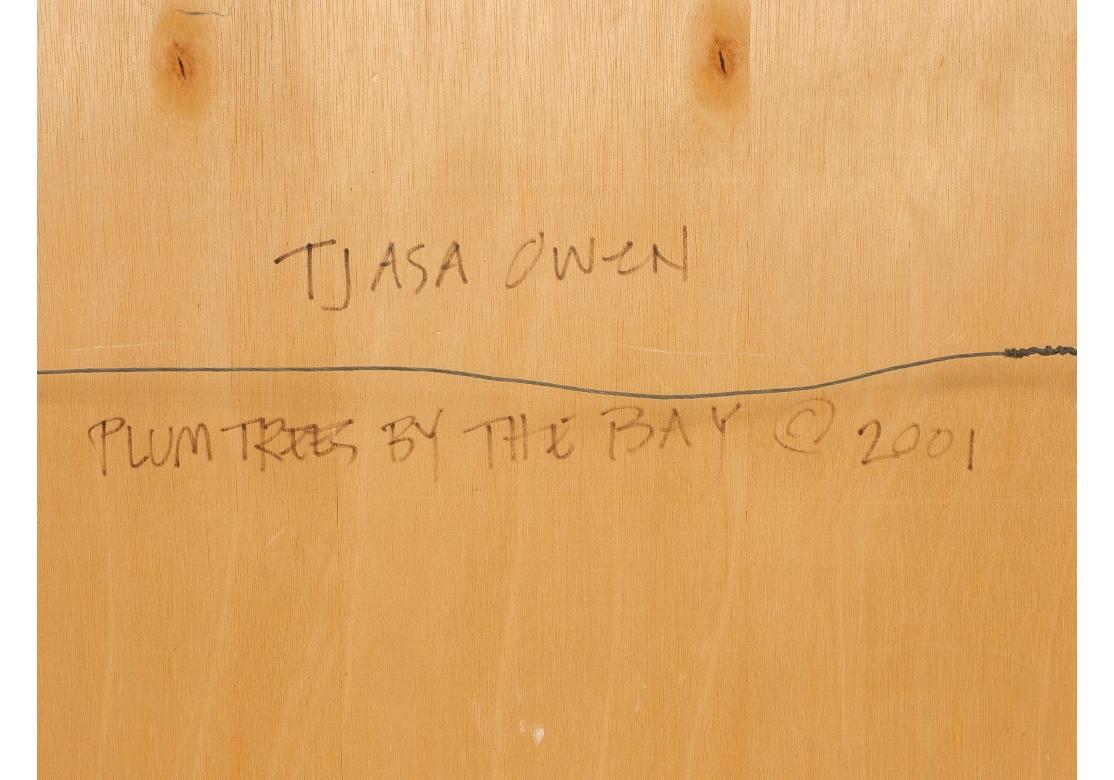 TJASA OWEN
PLUM TREES BY THE BAY © 2001